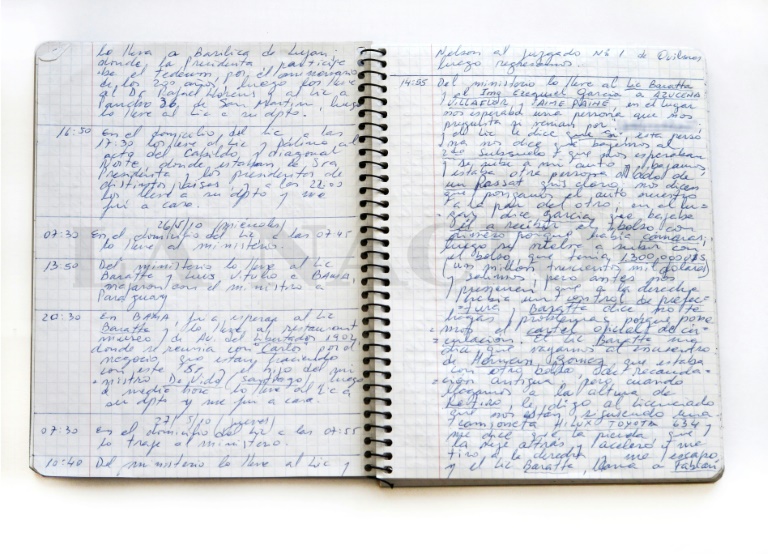 lo lleve a Basílica de Lujan
donde la Presidenta, participe
de el tedeum por el aniversario
de los 200 años, luego los lleve
al Dr Rafael y al Lic a
de San Martin, luego
lo lleve al Lic a su dpto.
16:50 En el domicilio del Lic a las
17:30 los lleve al Lic y al
acto del Cabildo, y diagonal
Norte, donde estaban la Sra
Presidenta y los presidentes de
distintos paises, a las 22:00
los lleve a su dpto y me
fui a casa.
26/5/10 (miercoles)
07:30 En el domicilio del Lic a las 07:45
lo lleve al ministerio.
13:50 Del ministerio lo lleve al Lic
Baratta y Luis Vitullo a BAIRES,
viajaron con el ministro a
Paraguay
20:30 En a esperar al Lic
Baratta y lo lleve al restaurant
museo, de Av. del Libertador 1902
donde se reunia con Carlos por el
negocio que estan haciendo
con este y el hijo del mi-
nistro De Vido (Santiago), luego
a media lo lleve al Lic a
su dpto y me fui a casa.
27/5/10 (jueves)
07:30 En el domicilio del Lic a las 07:55
lo traje al ministerio.
10:40 Del ministerio lo lleve al Lic y
Nelson al juzgado Nº 1 de Quilmes
luego regresamos.
14:55 Del ministerio lo lleve al Lic Baratta
y el Ing Ezequiel Garcia a AZUCENA
VILLAFLOR y JAIME PAINE, en el lugar
nos esperaba una persona que nos
pregunta si venian por
el Lic le dice que si, esta perso
na nos dice que bajemos al
2do subsuelo que nos esperaban
y se sube a mi auto y bajamos
estaba otra persona al lado de
un passat gris claro, nos dicen
que pongamos el auto nuestro
a la par del otro, en el lu-
gar, dice Garcia que bajaba
el a recibir el bolso con
dinero porque habia camaras,
luego se vuelve a subir con
el bolso, que tenia 1.300.000 U$S
(un millon trecientos mil dolares)
y salimos pero antes nos
preguntan que a la derecha
habia un control de prefec-
tura Baratta dice no te
hagas problemas, porque pone
mos el cartel oficial de cir-
culacion. el Lic Baratta me
dice que vayamos al encuentro
de Hernan Gomez que estaba
con otro bolso de recauda-
cion antigua, pero cuando
llegamos a la altura de
Retiro le digo al Licenciado
que nos estan siguiendo una
camioneta Hilux TOYOTA 634
me dice que la pierda que
la deje atras, acelero me
tiro a la derecha me escapo
y el Lic Baratta, llama a Fabian